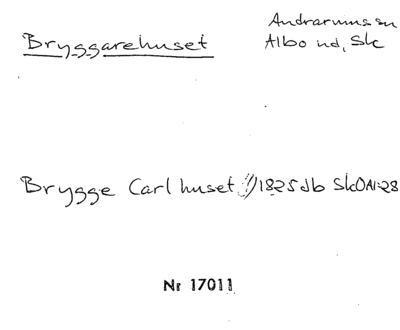 Bryggarehuset
Andrarums sn
Albo hd, Sk
Brygge Carl huset !)1825 db SkOAI:28
Nr 17011